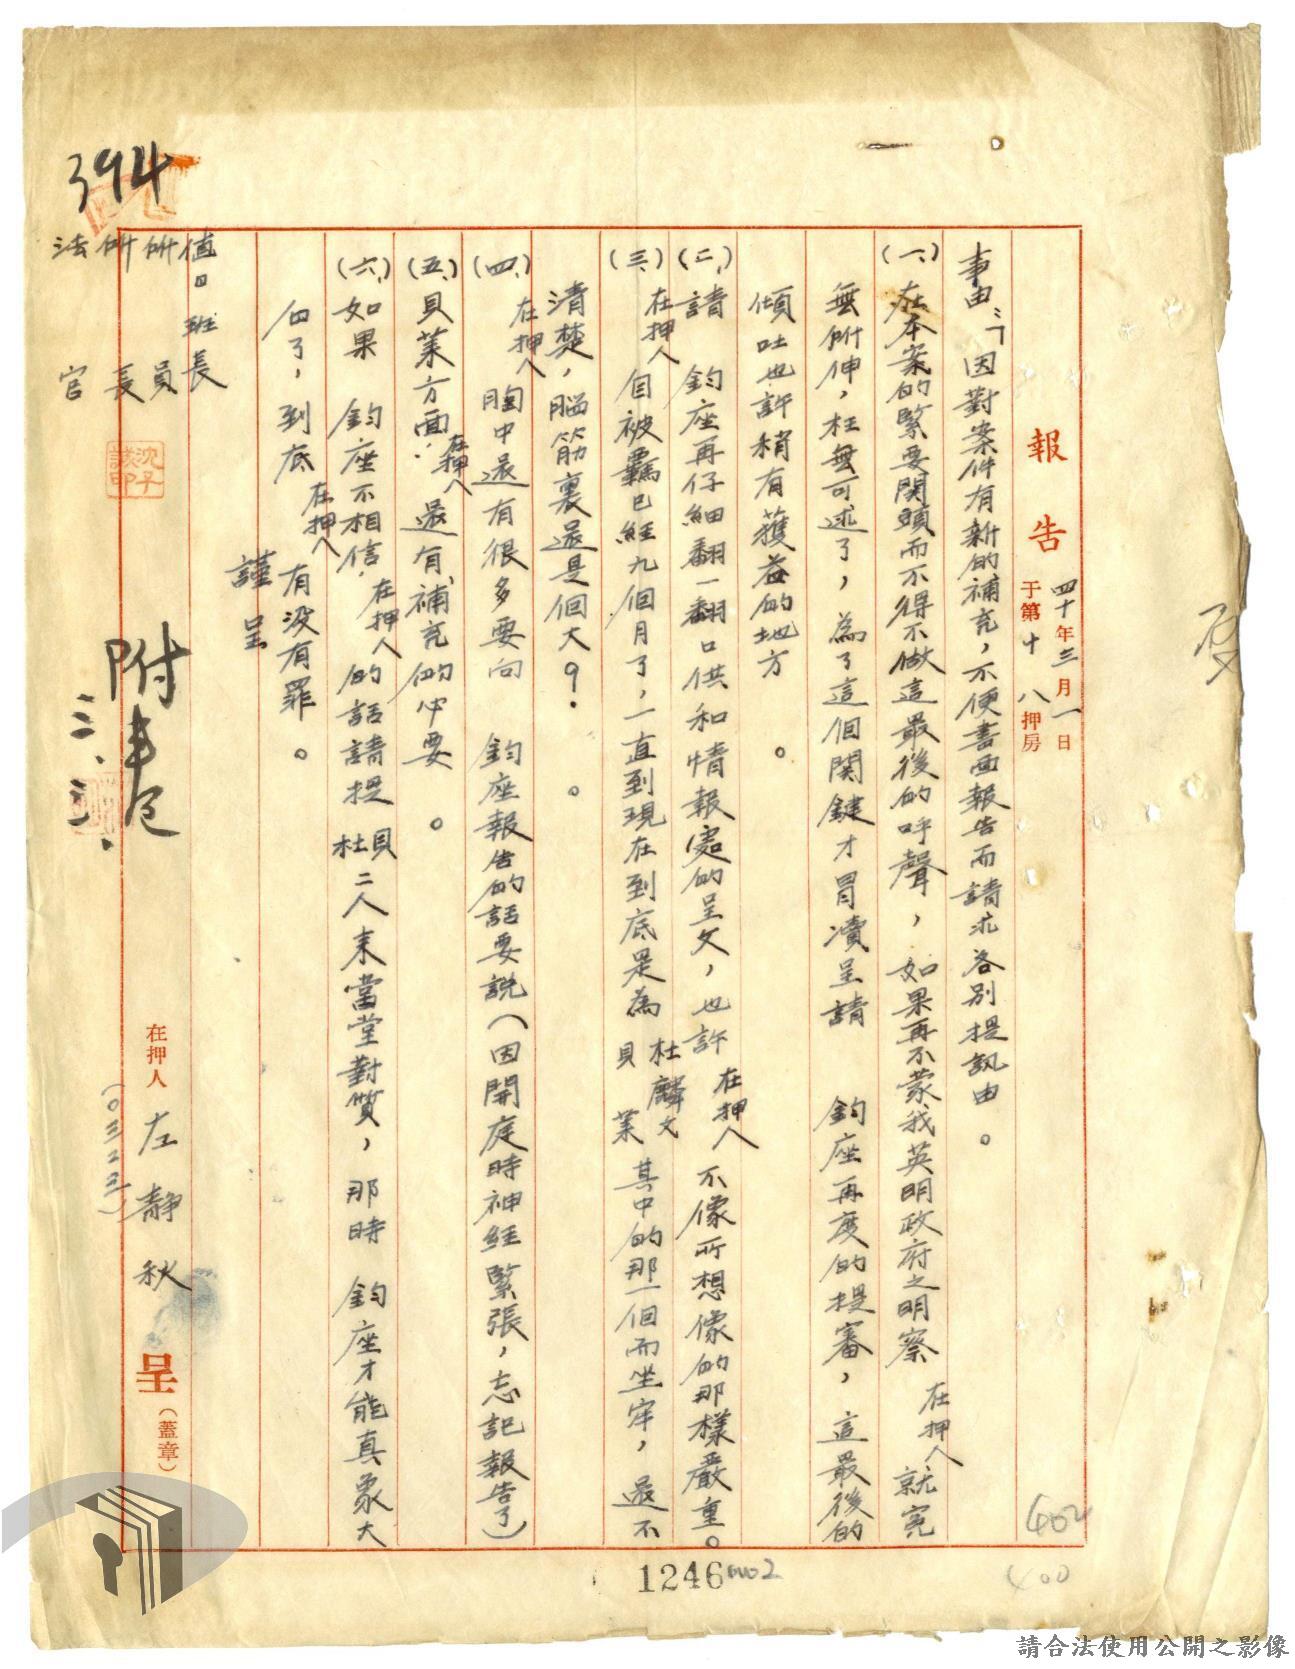 報告 四十年三月一日
于第十八押房
事由：「因對案件有新的補充，不便書面報告而請求各別提訊由。
(一、)在本案的緊要関頭而不得不做這最後的呼聲，如果再不蒙我英明政府之明察 在押人就寃
無所伸，枉無可述了，為了這個関鍵才冒凟呈請 鈞座再度的提審，這最後的
傾吐也許稍有獲益的地方。
(二、)請 鈞座再仔細翻一翻口供和情報處的呈文，也許在押人不像所想像的那樣嚴重。
(三、)在押人自被羈已經九個月了，一直到現在到底是為杜麟文貝萊其中的那一個而坐牢，還不
清楚，腦筋裏還是個大？。
(四、)在押人胸中還有很多要向 鈞座報告的話要說（因開庭時神經緊張，忘記報告了）
(五、)貝萊方面：在押人還有補充的必要。
(六、)如果 鈞座不相信在押人的話請提杜貝二人來當堂對質，那時 鈞座才能真象大
白了，到底在押人有没有罪。
謹呈
值日班長
所員
所長
法官
沈子誠印
附卷
三、三、
在押人 左靜秋 呈（蓋章）
（０三二三）
394
402
400
1246
0002
請合法使用公開之影像